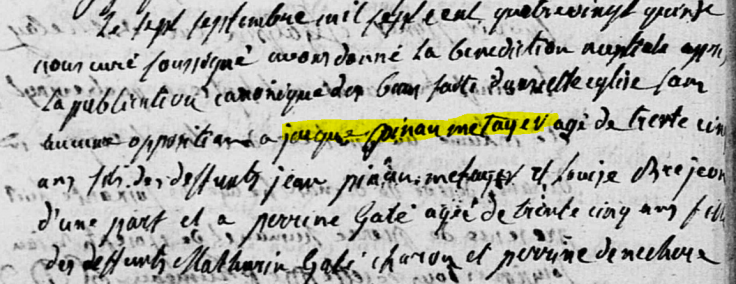 Le sept septembre mil sept cent quatrevingt quinze
nous curé soussigné avons donné la benediction nuptiale apres
la publication canonique des bans faitte dans cette eglise sans
aucune opposition a jaque pinau metayer agé de trente cinq
ans fils des deffunts jean pinau metayer et Louise Brejeon
d'une part et a perrine Gaté agée de trente cinq ans fille
des deffunts Mathurin Gaté charon et perrine